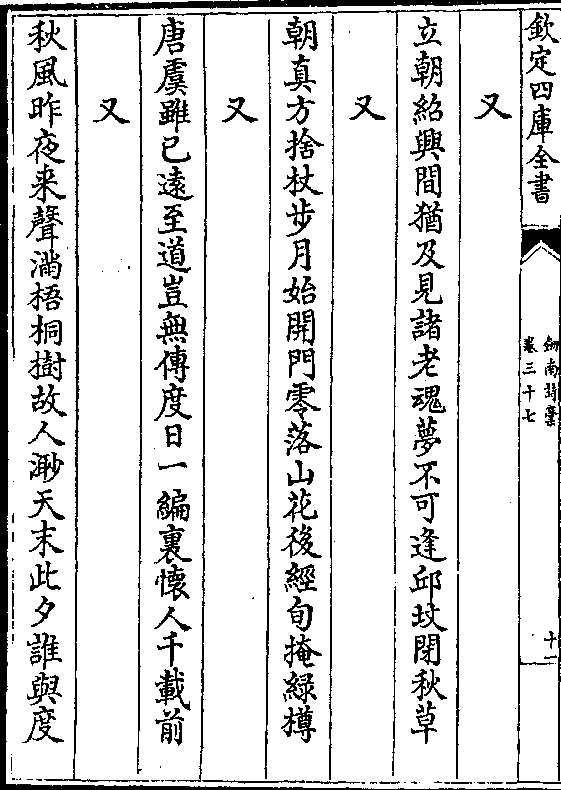 欽定四庫全書
劍南詩稾
卷三十七
十一
又
立朝紹興間猶及見諸老魂夢不可逢邱坟閉秋草
又
朝真方捨杖步月始開門零落山花後經旬掩緑樽
又
唐虞雖已遠至道豈無傳度日一編裏懐人千載前
又
秋風昨夜来聲滿梧桐樹故人渺天末此夕誰與度